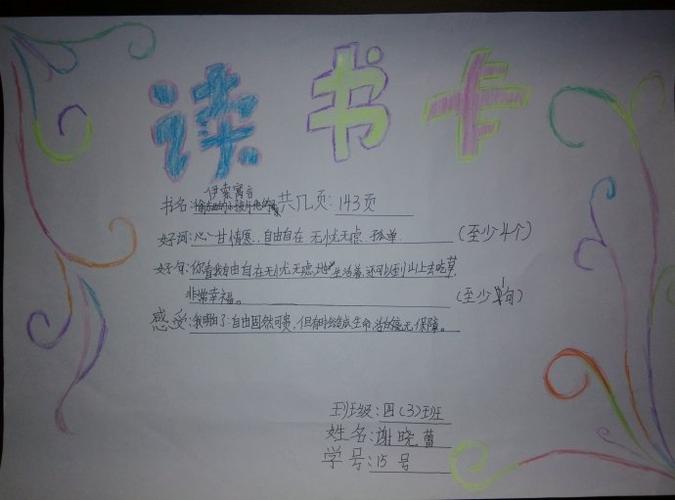 读书卡
伊索寓言
书名: 共几页: 143页
好词: 心甘情愿、自由自在 无忧无虑、孤单 (至少4个)
好句: 你看我自由自在无忧无虑地生活着,还可以到山上去吃草,
非常幸福。 (至少1句)
感受: 我明白了:自由固然可贵,但有时会造成生命毫无保障。
班级: 四(3)班
姓名: 谢晓蕾
学号: 15号